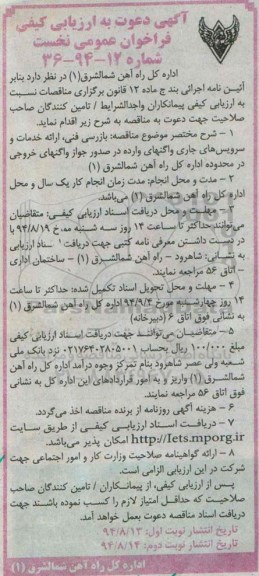 آگهی دعوت به ارزیابی کیفی
فراخوان عمومی نخست
شماره ۱۲-۹۴-۳۶
اداره کل راه آهن شمالشرق(۱) در نظر دارد بنابر
آئین نامه اجرائی بند ج ماده ۱۲ قانون برگزاری مناقصات نسبت
به ارزیابی کیفی پیمانکاران واجدالشرایط / تامین کنندگان صاحب
صلاحیت جهت دعوت به مناقصه به شرح زیر اقدام نماید.
۱ - شرح مختصر موضوع مناقصه: بازرسی فنی، ارائه خدمات و
سرویس‌های جاری واگنهای وارده در صدور جواز واگنهای خروجی
در محدوده اداره کل راه آهن شمالشرق (۱)
۲ - مدت و محل انجام: مدت زمان انجام کار یک سال و محل
اداره کل راه آهن شمالشرق (۱) می‌باشد.
۳ - مهلت و محل دریافت اسناد ارزیابی کیفی: متقاضیان
می‌توانند حداکثر تا ساعت ۱۴ روز سه شنبه مورخ ۹۴/۸/۱۹ با
در دست داشتن معرفی نامه کتبی جهت دریافت اسناد ارزیابی
به نشانی: شاهرود - راه آهن شمالشرق (۱) - ساختمان اداری
- اتاق ۵۶ مراجعه نمایند.
۴ - مهلت و محل تحویل اسناد تکمیل شده: حداکثر تا ساعت
۱۴ روز چهارشنبه مورخ ۹۴/۹/۴ اداره کل راه آهن شمالشرق (۱)
به نشانی فوق اتاق ۶ (دبیرخانه)
۵ - متقاضیان می‌توانند جهت دریافت اسناد ارزیابی کیفی
مبلغ ۱۰۰/۰۰۰ ریال بحساب ۲۱۷۶۴۰۲۸۰۵۰۰۱ نزد بانک ملی
شعبه ولی عصر شاهرود بنام تمرکز وجوه درآمد اداره کل راه آهن
شمالشرق (۱) واریز و به امور قراردادهای این اداره کل به نشانی
فوق اتاق ۵۶ مراجعه نمایند.
۶ - هزینه آگهی روزنامه از برنده مناقصه اخذ می‌گردد.
۷ - دریافت اسناد ارزیابی کیفی از طریق سایت
http://Iets.mporg.ir امکان پذیر می‌باشد.
۸ - ارائه گواهینامه صلاحیت وزارت کار و امور اجتماعی جهت
شرکت در این ارزیابی الزامی است.
پس از ارزیابی کیفی، از پیمانکاران / تامین کنندگان صاحب
صلاحیت که حداقل امتیاز لازم را کسب نموده باشند جهت
دریافت اسناد مناقصه دعوت بعمل خواهد آمد.
تاریخ انتشار نوبت اول: ۹۴/۸/۱۳
تاریخ انتشار نوبت دوم: ۹۴/۸/۱۴
اداره کل راه آهن شمالشرق (۱)